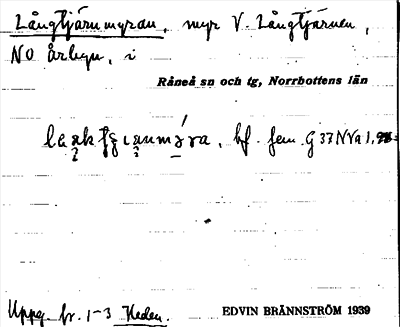 Långtjärnmyran, myr V. Långtjärnen,
NO Årbyn, i
Råneå sn och tg, Norrbottens län
bf. fem. G 37 NVa 1,
Uppg. fr. 1-3 Heden.
EDVIN BRÄNNSTRÖM 1939